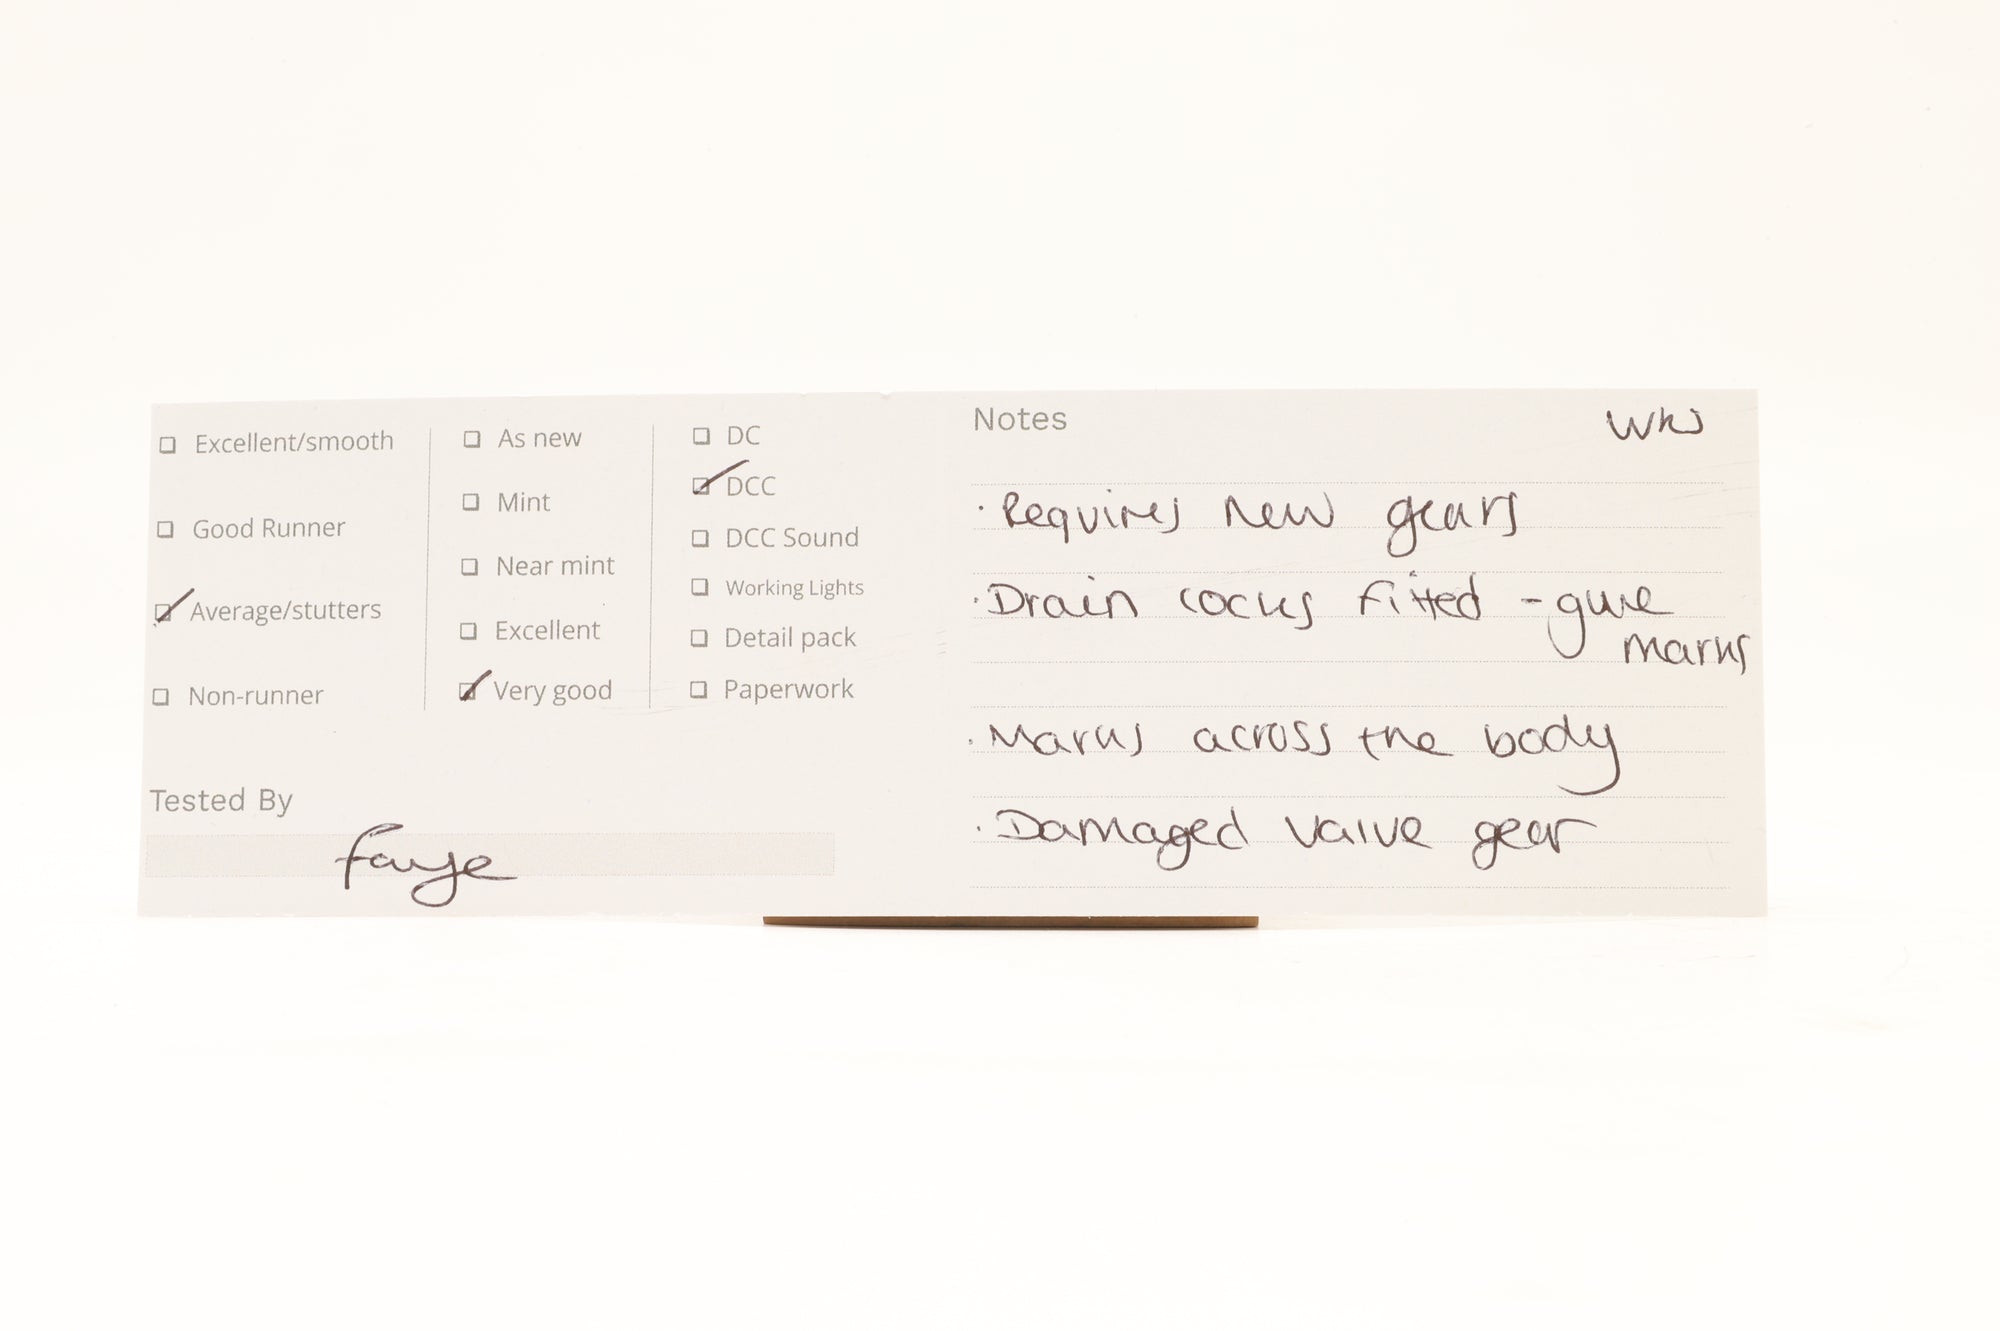 Excellent/smooth
Good Runner
Average/stutters
Non-runner
As new
Mint
Near mint
Excellent
Very good
DC
DCC
DCC Sound
Working Lights
Detail pack
Paperwork
Tested By
Faye
Notes
WKS
· Requires New gears
· Drain cocks fitted - glue
marks
· Marks across the body
· Damaged valve gear